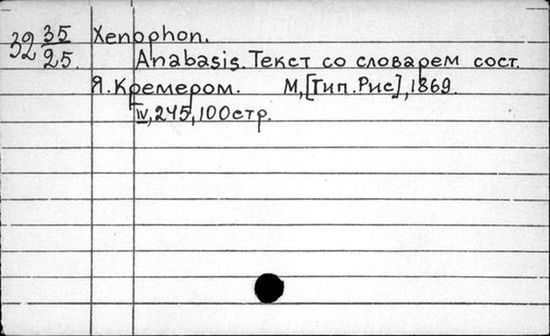 32 35/25. Xenophon.
Anabasis. Текст со словарем сост.
Я. Кремером. М, [Тип. Рис], 1869.
IV, 245, 100 стр.